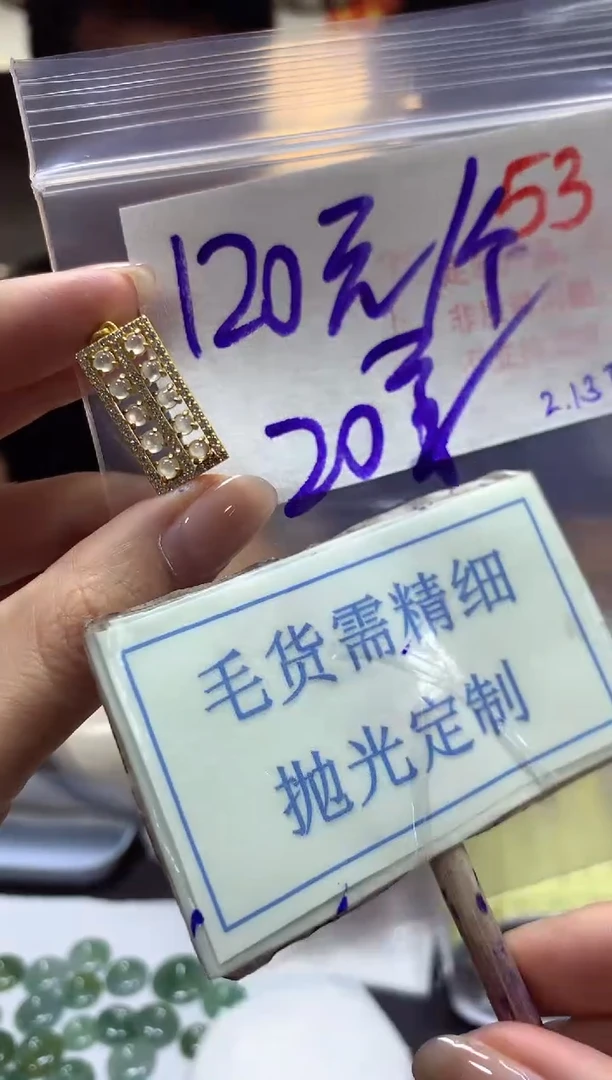 53
120元/个
20
2.13
毛货需精细
抛光定制